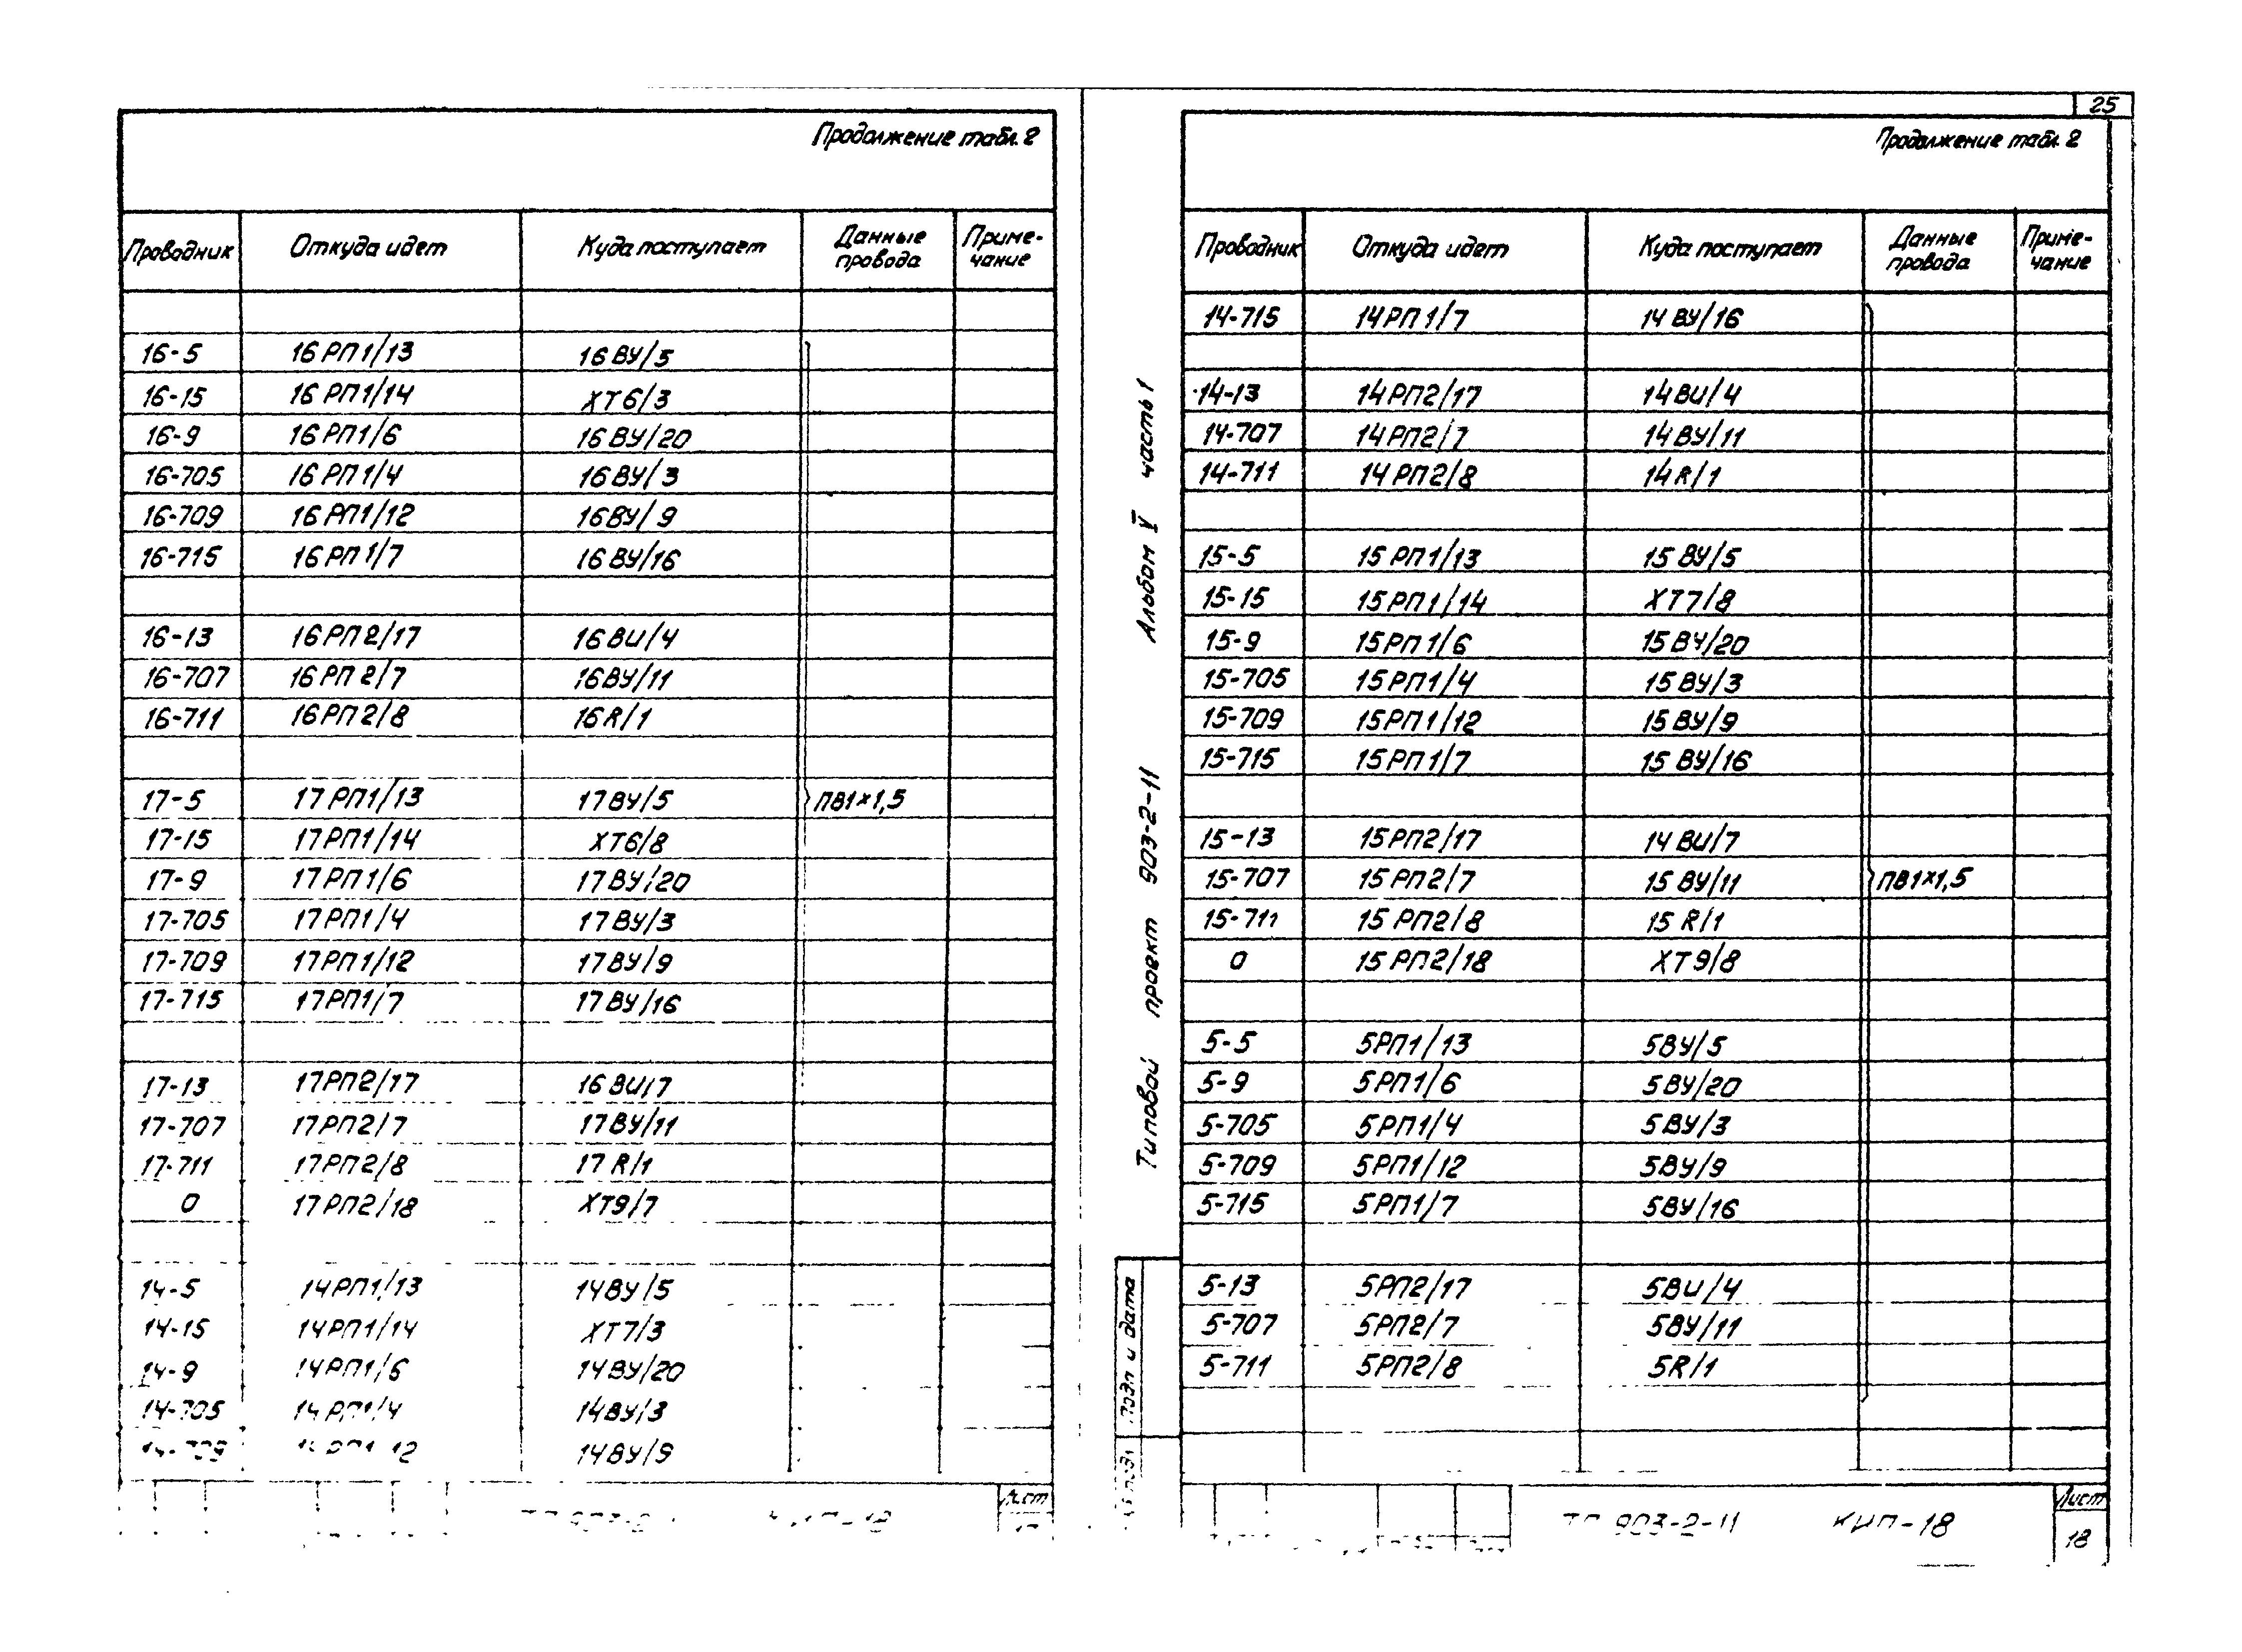 25
Продолжение табл. 2
Проводник Откуда идет Куда поступает Данные провода Приме-чание
16-5 16РП1/13 16ВУ/5
16-15 16РП1/14 ХТ6/3
16-9 16РП1/6 16ВУ/20
16-705 16РП1/4 16ВУ/3
16-709 16РП1/12 16ВУ/9
16-715 16РП1/7 16ВУ/16
16-13 16РП2/17 16ВИ/4
16-707 16РП2/7 16ВУ/11
16-711 16РП2/8 16R/1
17-5 17РП1/13 17ВУ/5 ПВ1×1,5
17-15 17РП1/14 ХТ6/8
17-9 17РП1/6 17ВУ/20
17-705 17РП1/4 17ВУ/3
17-709 17РП1/12 17ВУ/9
17-715 17РП1/7 17ВУ/16
17-13 17РП2/17 16ВИ/7
17-707 17РП2/7 17ВУ/11
17-711 17РП2/8 17R/1
0 17РП2/18 ХТ9/7
14-5 14РП1/13 14ВУ/5
14-15 14РП1/14 ХТ7/3
14-9 14РП1/6 14ВУ/20
14-705 14РП1/4 14ВУ/3
14-709 14ВУ/9
Лист
Продолжение табл. 2
Проводник Откуда идет Куда поступает Данные провода Приме-чание
14-715 14РП1/7 14ВУ/16
14-13 14РП2/17 14ВИ/4
14-707 14РП2/7 14ВУ/11
14-711 14РП2/8 14R/1
15-5 15РП1/13 15ВУ/5
15-15 15РП1/14 ХТ7/8
15-9 15РП1/6 15ВУ/20
15-705 15РП1/4 15ВУ/3
15-709 15РП1/12 15ВУ/9
15-715 15РП1/7 15ВУ/16
15-13 15РП2/17 14ВИ/7
15-707 15РП2/7 15ВУ/11 ПВ1×1,5
15-711 15РП2/8 15R/1
0 15РП2/18 ХТ9/8
5-5 5РП1/13 5ВУ/5
5-9 5РП1/6 5ВУ/20
5-705 5РП1/4 5ВУ/3
5-709 5РП1/12 5ВУ/9
5-715 5РП1/7 5ВУ/16
5-13 5РП2/17 5ВИ/4
5-707 5РП2/7 5ВУ/11
5-711 5РП2/8 5R/1
Типовой проект 903-2-11 Альбом V часть 1
Подп и дата
ТП 903-2-11 КИП-18
Лист
18